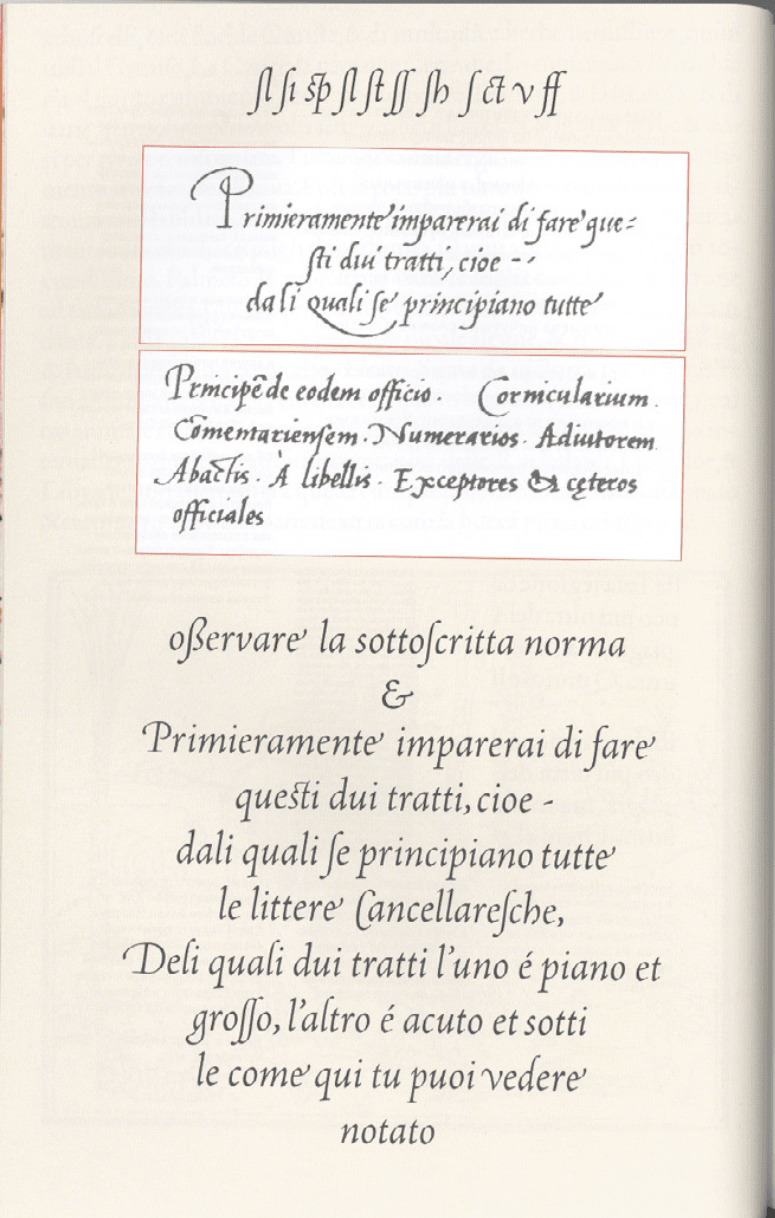 ſl ſi sp ſl ſt ſſ ſh ſ ct v ff
Primieramente imparerai di fare que=
ſti dui tratti, cioe - ՛
da li quali ſe principiano tutte
Principẽ de eodem officio. Cornicularium.
Cõmentarienſem. Numerarios. Adiutorem
Abactis. À libellis. Exceptores & cęteros
officiales
oßervare la sottoſcritta norma
&
Primieramente imparerai di fare
questi dui tratti, cioe -
dali quali ſe principiano tutte
le littere Cancellareſche,
Deli quali dui tratti l'uno é piano et
groſſo, l'altro é acuto et sotti
le come qui tu puoi vedere
notato